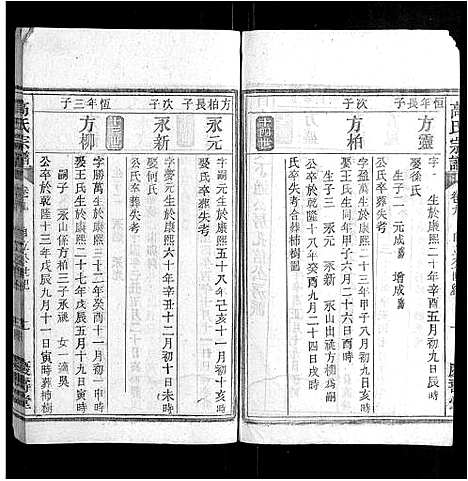 高氏宗譜
卷九
方靈
生於康熙二十年辛酉五月初九日辰時
娶徐氏
生子二 元成嗣 增成嗣
公氏卒葬失考
次子
方柏
字盈萬生於康熙二十三年甲子八月初十亥時
娶王氏生同年甲子六月二十六日寅時
生子三 永元 永新 永山出祧方柳為嗣
公卒於乾隆十八年癸酉九月二十四日戌時
氏卒失考合葬柿樹園
十四世
方柏長子
永元
字嗣元生於康熙五十八年己亥十一月初十亥時
公氏卒葬失考
次子
永新
字譽元生於康熙六十年辛丑十二月初十日未時
娶何氏
公氏卒葬失考
十三世
恆年三子
方柳
字勝萬生於康熙三十二年癸酉十一月初一申時
娶王氏生於康熙三十五年丙子九月十九日寅時
嗣子 永山係方柏三子承祧 女一適吳
公卒於乾隆十三年戊辰九月十一日寅時葬柿樹
高氏宗譜
慶善堂